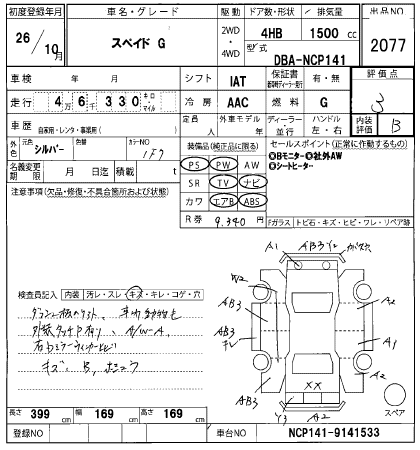 初度登録年月 車名・グレード 駆動 ドア数・形状 排気量 出品NO
26 / 10月 スペイド G 2WD・4WD 4HB 1500 cc 2077
型式 DBA-NCP141
車検 年 月 シフト IAT 保証書 有・無 評価点
走行 4万6千330 キロ・マイル 冷房 AAC 燃料 G 3
車歴 自家用・レンタ・事業用( ) 定員 人 外車モデル 年 ディーラー 並行 ハンドル 左・右 内装評価 B
外色 元色 シルバー 色替 カラーNO 1F7 装備品(純正品に限る) セールスポイント(正常に作動するもの)
名義変更期限 月 日迄 積載 t PS PW AW ◎Bモニター◎社外AW
注意事項(欠品・修復・不具合箇所および状態) SR TV ナビ ◎シートヒーター
カワ エアB ABS
R券 9.340円 Fガラス トビ石・キズ・ヒビ・ワレ・リペア跡
A1 AB3 Y2
W2
AB3 A2
検査員記入 内装 汚レ・スレ・キズ・キレ・コゲ・穴
AB3 キレ A1
外装タッチP有り、A/W-A
A2
キズ、B
AB3 XX
Y3 A2 スペア
長さ 399 cm 幅 169 cm 高さ 169 cm
登録NO 車台NO NCP141-9141533